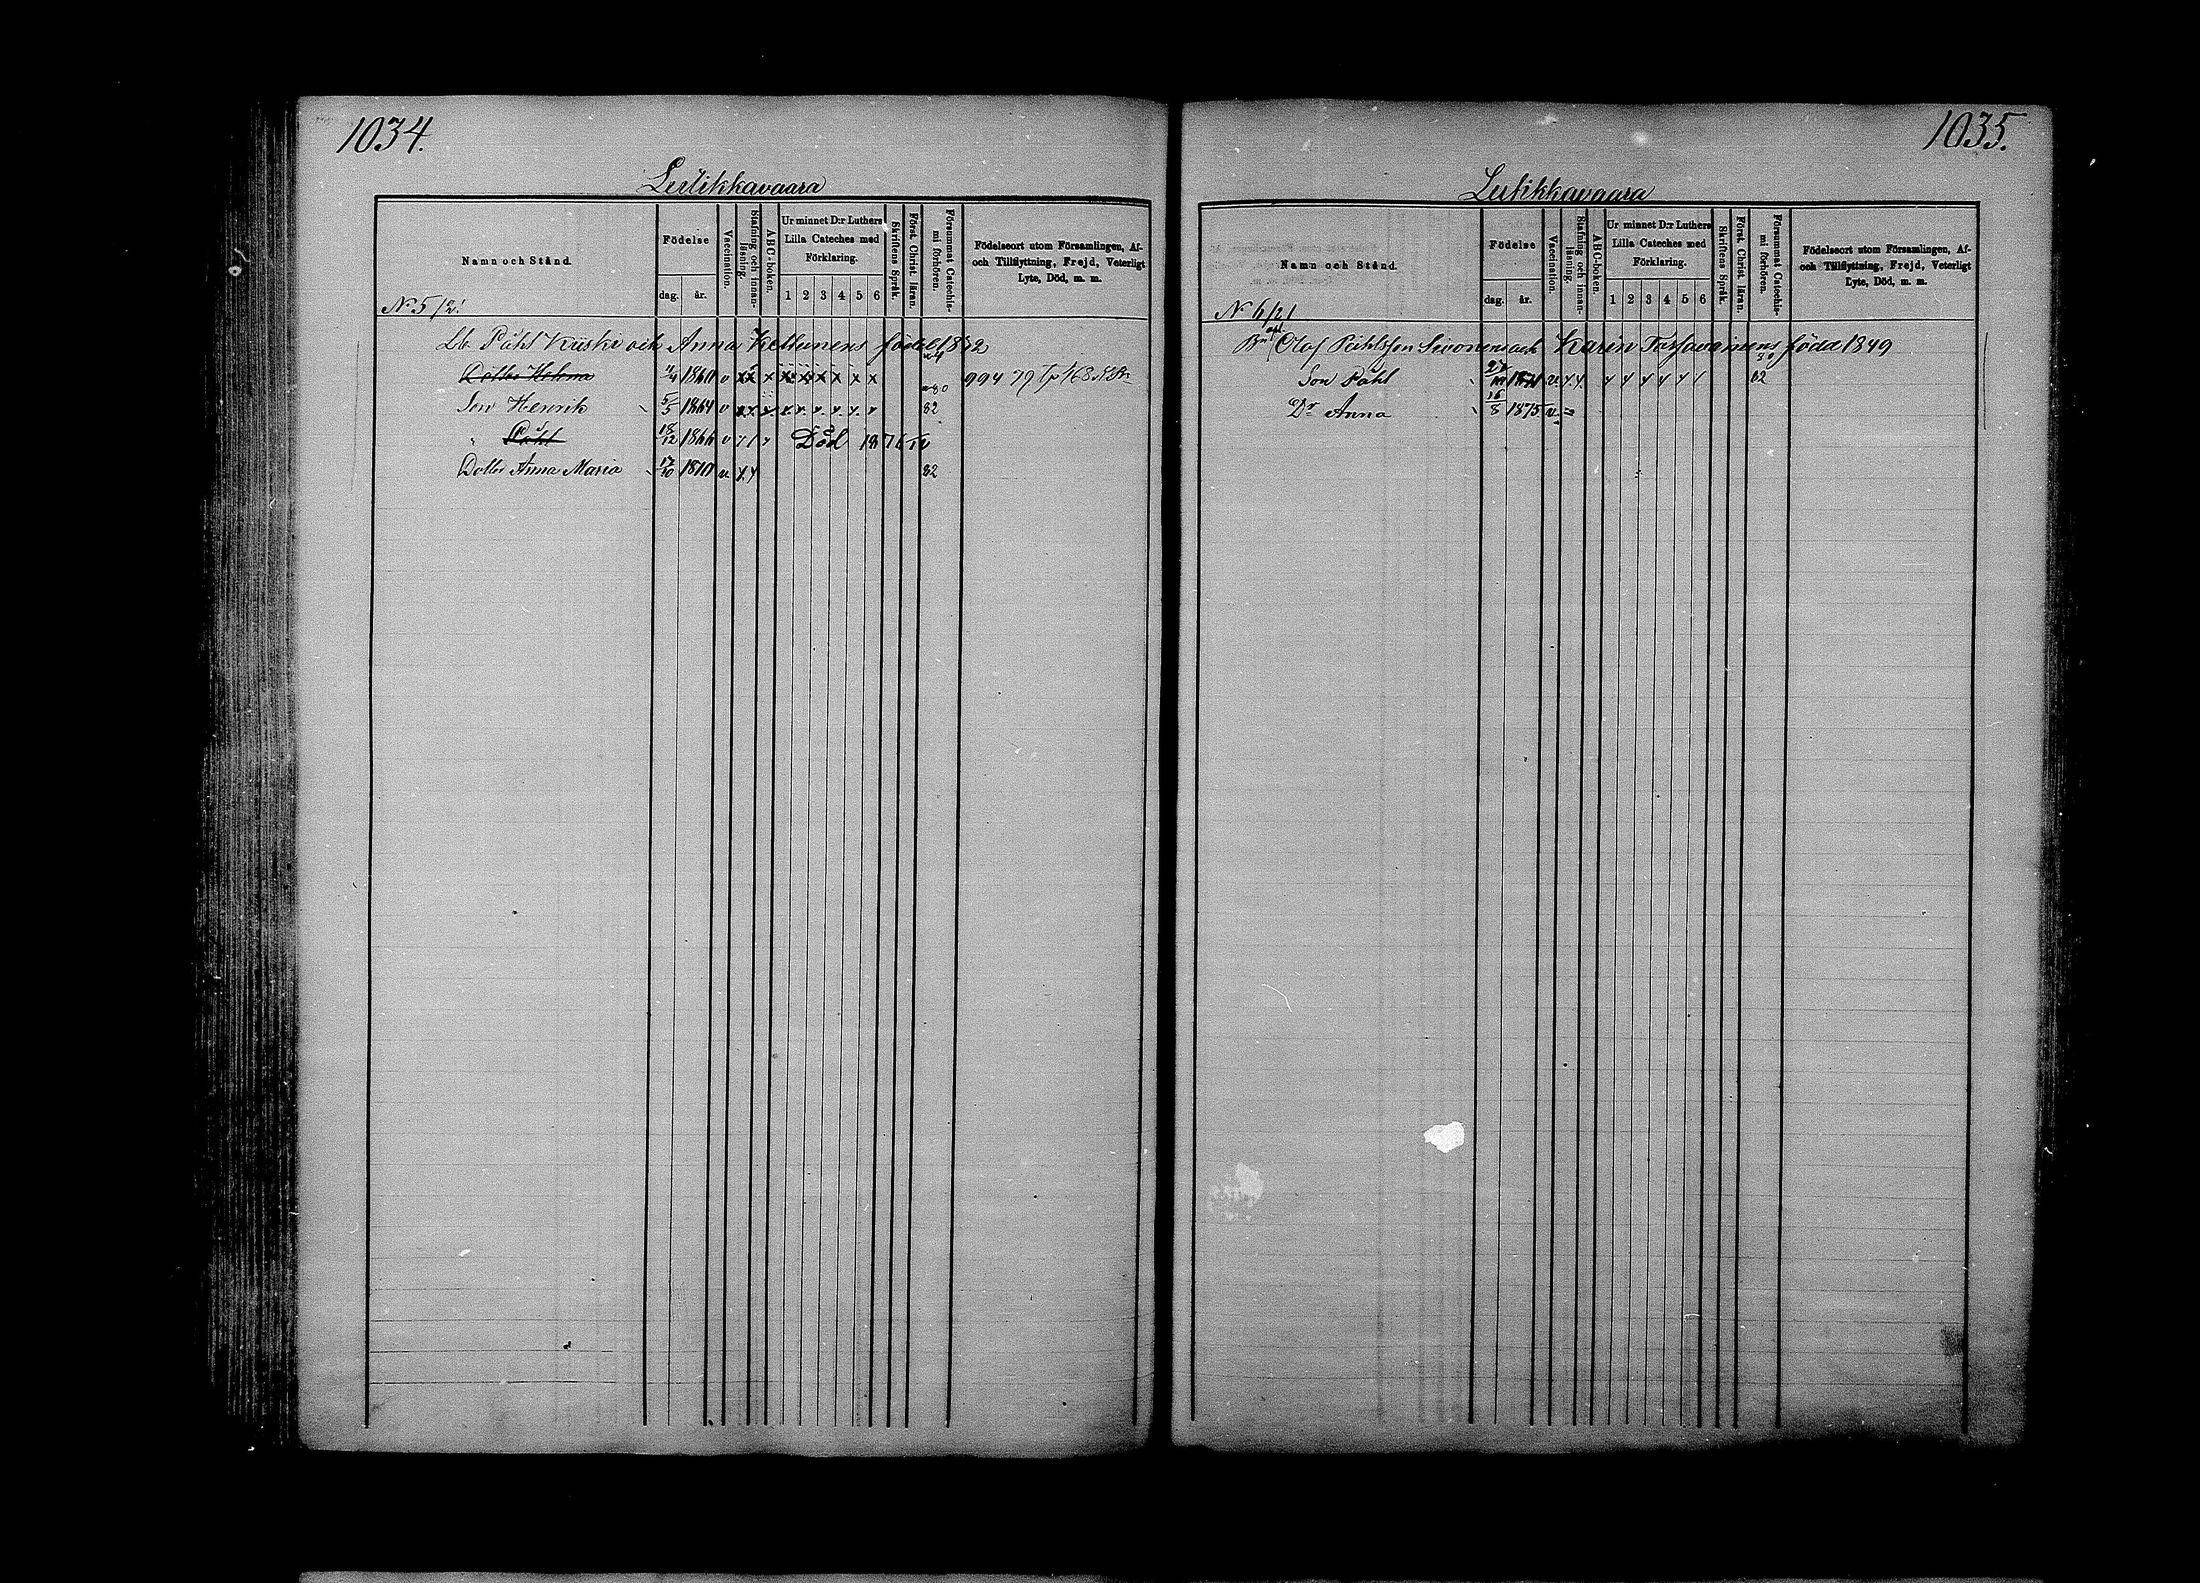 1034.
Lutikkavaara
Namn och Stånd.
Födelse
dag. år.
Vaccination.
Stafning och innanläsning.
ABC-boken.
Ur minnet D:r Luthers Lilla Cateches med Förklaring.
1 2 3 4 5 6
Skriftens Språk.
Först. Christ. läran.
Försummat Catechismi förhören.
Födelseort utom Församlingen, Af- och Tillflyttning, Frejd, Veterligt Lyte, Död, m. m.
N:o 5/21
Lb. Påhl Kiiski och Anna Kettunens född 1832
Dotter Helena 1860 v x x x x x x x x x 994 79
Son Henrik 5/5 1864 v 82
" Påhl 18/12 1866 v Död 1876
Dotter Anna Maria 17/10 1870 v. 82
1035.
Lutikkavaara
Namn och Stånd.
Födelse
dag. år.
Vaccination.
Stafning och innanläsning.
ABC-boken.
Ur minnet D:r Luthers Lilla Cateches med Förklaring.
1 2 3 4 5 6
Skriftens Språk.
Först. Christ. läran.
Försummat Catechismi förhören.
Födelseort utom Församlingen, Af- och Tillflyttning, Frejd, Veterligt Lyte, Död, m. m.
N:o 6/21
Olof Påhlsson Sivonens och Karin TurSavainens född 1849
Son Påhl 1871 v. 82
Dr Anna 16/8 1875 v.